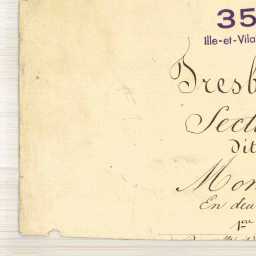 35
Ille-et-Vila
Presb
Secti
dit
Mon
En deu
1ère